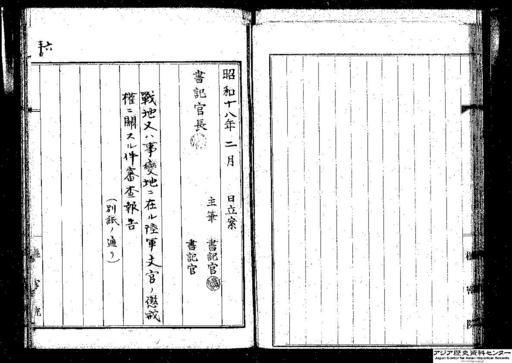 昭和十八年 二月 日立案
書記官長
主筆 書記官
書記官
戰地又ハ事變地ニ在ル陸軍文官ノ懲戒
權ニ關スル件審査報告
(別紙ノ通リ)
樞密院
アジア歴史資料センター
Japan Center for Asian Historical Records